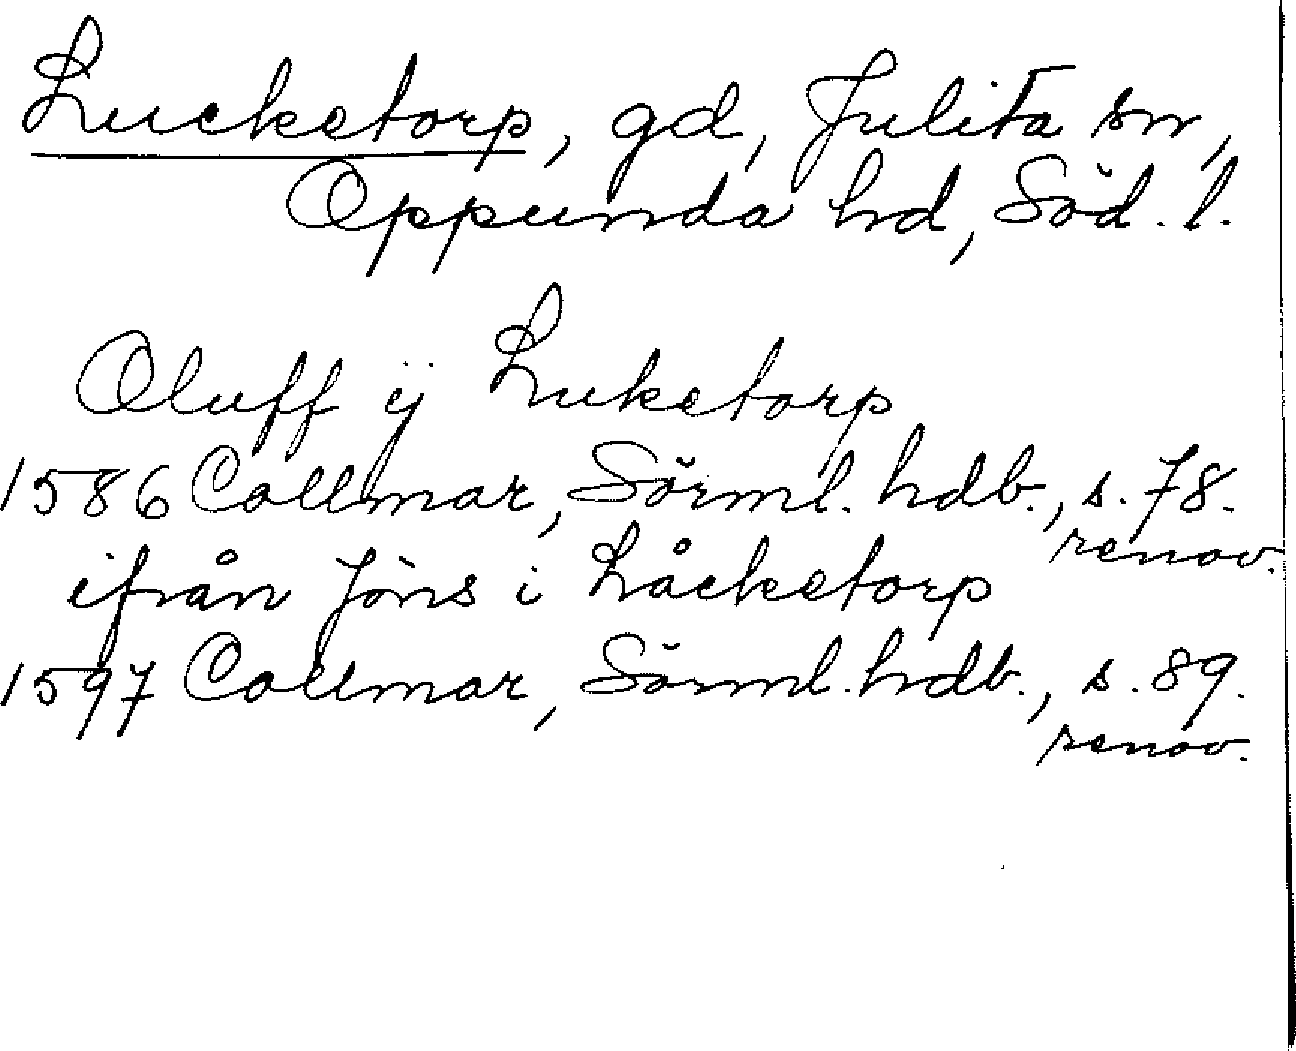 Lucketorp, gd, Julita sn,
Oppunda hd, Söd. l.
Oluff ij Luketorp
1586 Collmar, Sörml. hdb., s. 78.
renov.
ifrån Jöns i Låcketorp
1597 Collmar, Sörml. hdb., s. 89.
renov.